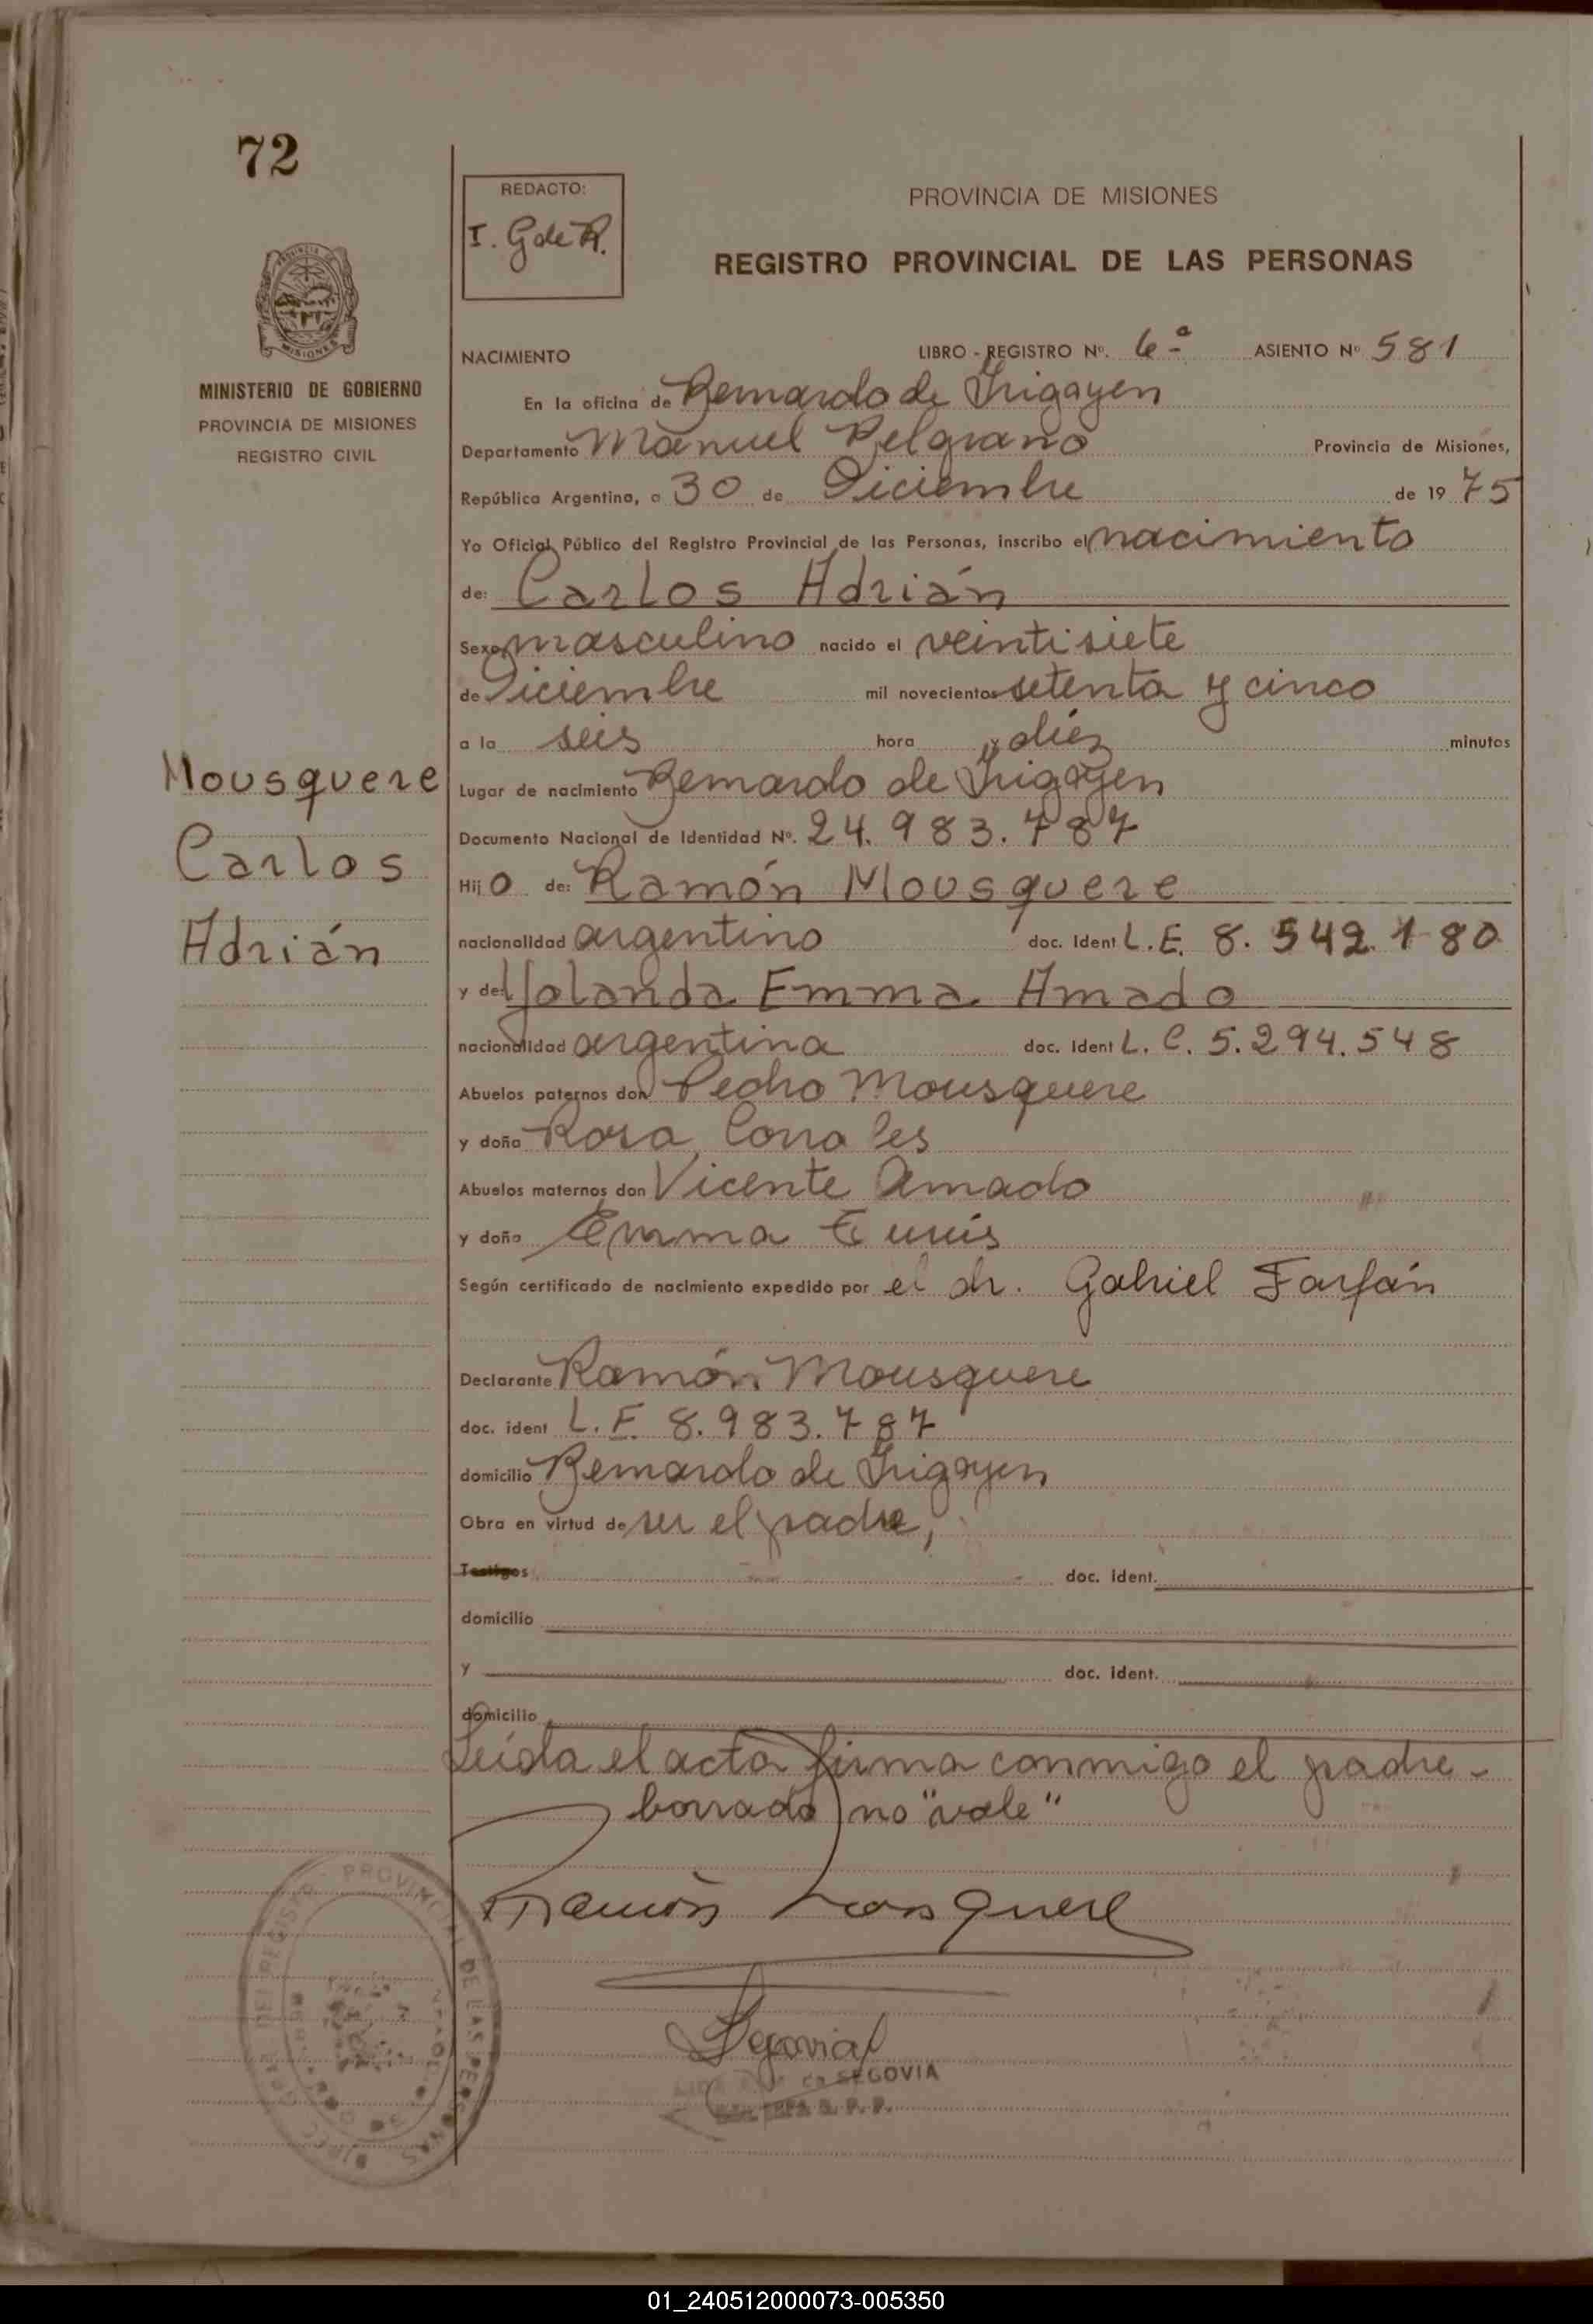 72
REDACTO:
I. G de R.
PROVINCIA DE MISIONES
REGISTRO PROVINCIAL DE LAS PERSONAS
MISIONES
MINISTERIO DE GOBIERNO
PROVINCIA DE MISIONES
REGISTRO CIVIL
NACIMIENTO LIBRO - REGISTRO Nº. 6ª ASIENTO Nº 581
En la oficina de Bernardo de Irigoyen
Departamento Manuel Belgrano Provincia de Misiones,
República Argentina, a 30 de Diciembre de 19 75
Yo Oficial Público del Registro Provincial de las Personas, inscribo el nacimiento
de: Carlos Adrián
Sexo masculino nacido el veintisiete
de Diciembre mil novecientos setenta y cinco
a la seis hora y diéz minutos
Mousquere
Carlos
Adrián
Lugar de nacimiento Bernardo de Irigoyen
Documento Nacional de Identidad Nº. 24.983.787
Hij o de: Ramón Mousquere
nacionalidad argentino doc. Ident L.E. 8.542.180
y de: Yolanda Emma Amado
nacionalidad argentina doc. Ident L.C. 5.294.548
Abuelos paternos don Pedro Mousquere
y doña Rosa Corrales
Abuelos maternos don Vicente Amado
y doña Emma
Según certificado de nacimiento expedido por el dr. Gabriel Farfán
Declarante Ramón Mousquere
doc. ident L.E. 8.983.787
domicilio Bernardo de Irigoyen
Obra en virtud de ser el padre,
Testigos doc. ident.
domicilio
y doc. ident.
domicilio
Leída el acta firma conmigo el padre -
borrado no "vale"
Ramón Mousquere
Segovia
de SEGOVIA
PROVINCIAL DE LAS PERSONAS
01_240512000073-005350